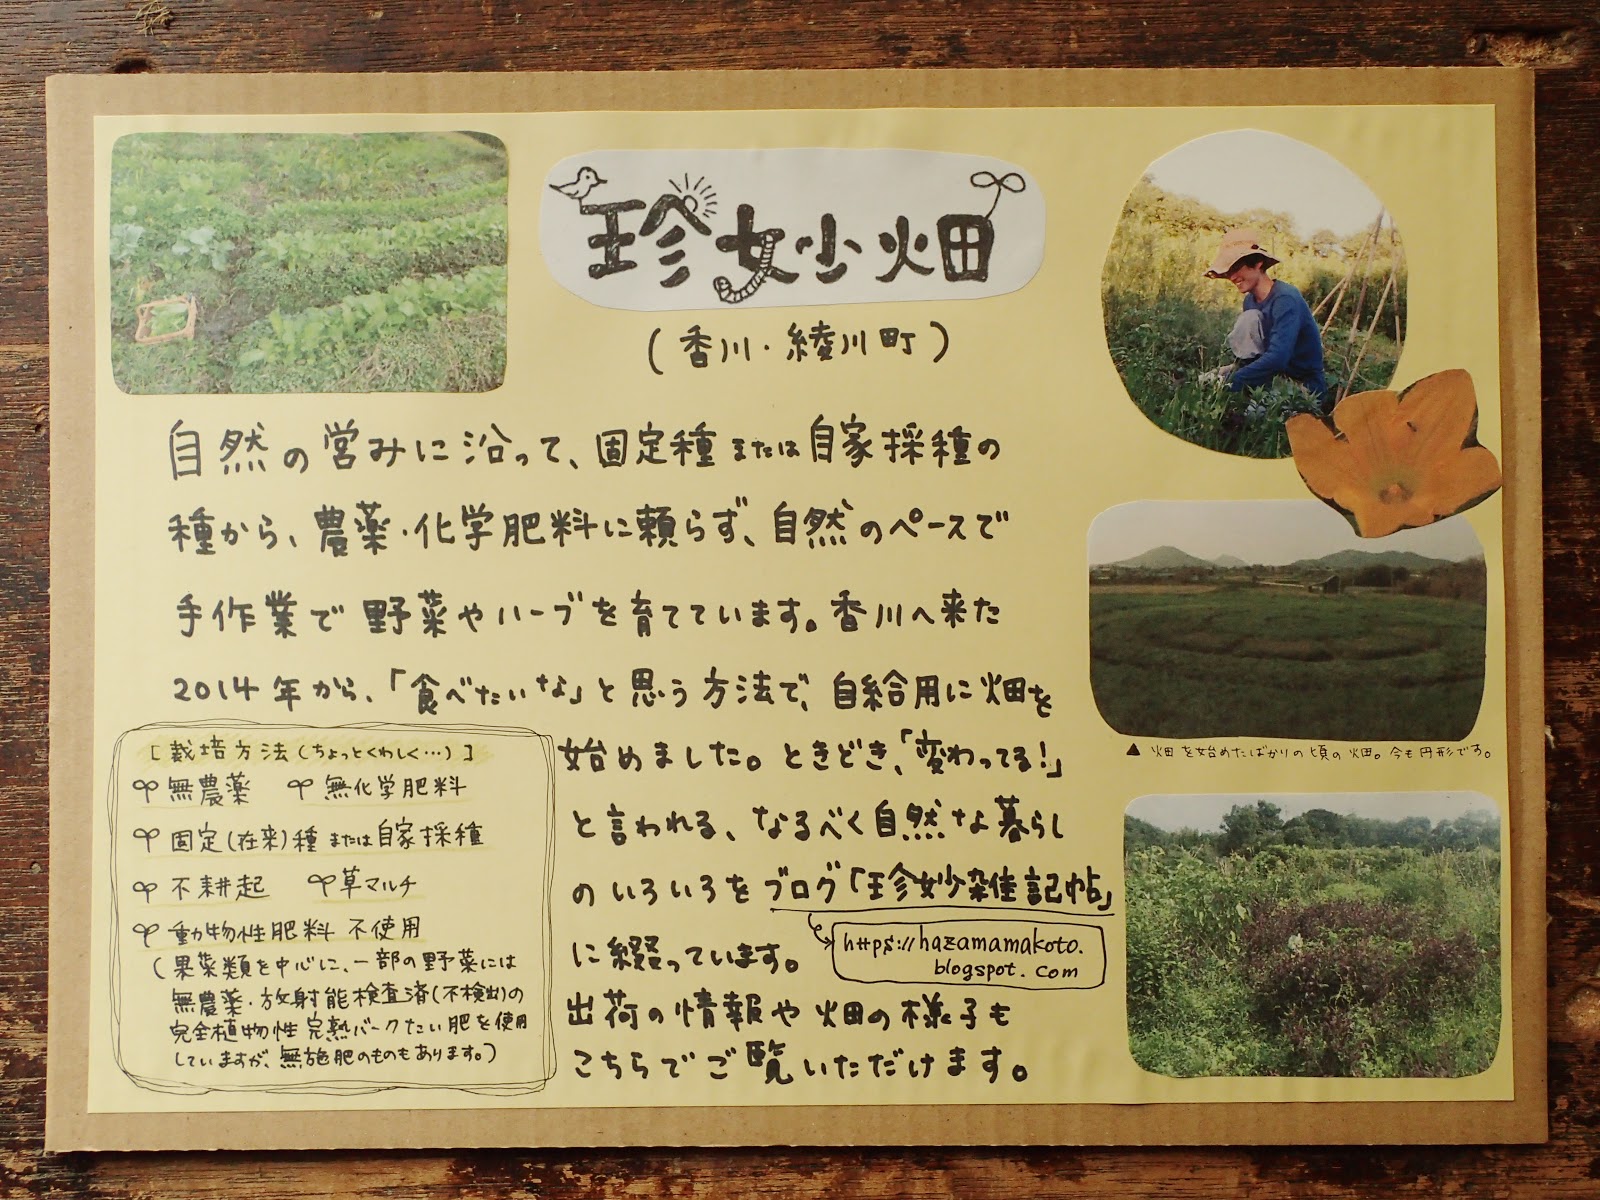 珍妙畑
(香川・綾川町)
自然の営みに沿って、固定種または自家採種の
種から、農薬・化学肥料に頼らず、自然のペースで
手作業で野菜やハーブを育てています。香川へ来た
2014年から、「食べたいな」と思う方法で、自給用に畑を
始めました。ときどき、「変わってる!」
と言われる、なるべく自然な暮らし
のいろいろをブログ「珍妙雑佳記帖」
https://hazamamakoto.
blogspot.com
に綴っています。
出荷の情報や畑の様子も
こちらでご覧いただけます。
[栽培方法(ちょっとくわしく…)]
無農薬 無化学肥料
固定(在来)種または自家採種
不耕起 草マルチ
動物性肥料不使用
(果菜類を中心に、一部の野菜には
無農薬・放射能検査済(不検出)の
完全植物性完熟バークたい肥を使用
していますが、無施肥のものもあります。)
▲畑を始めたばかりの頃の畑。今も円形です。